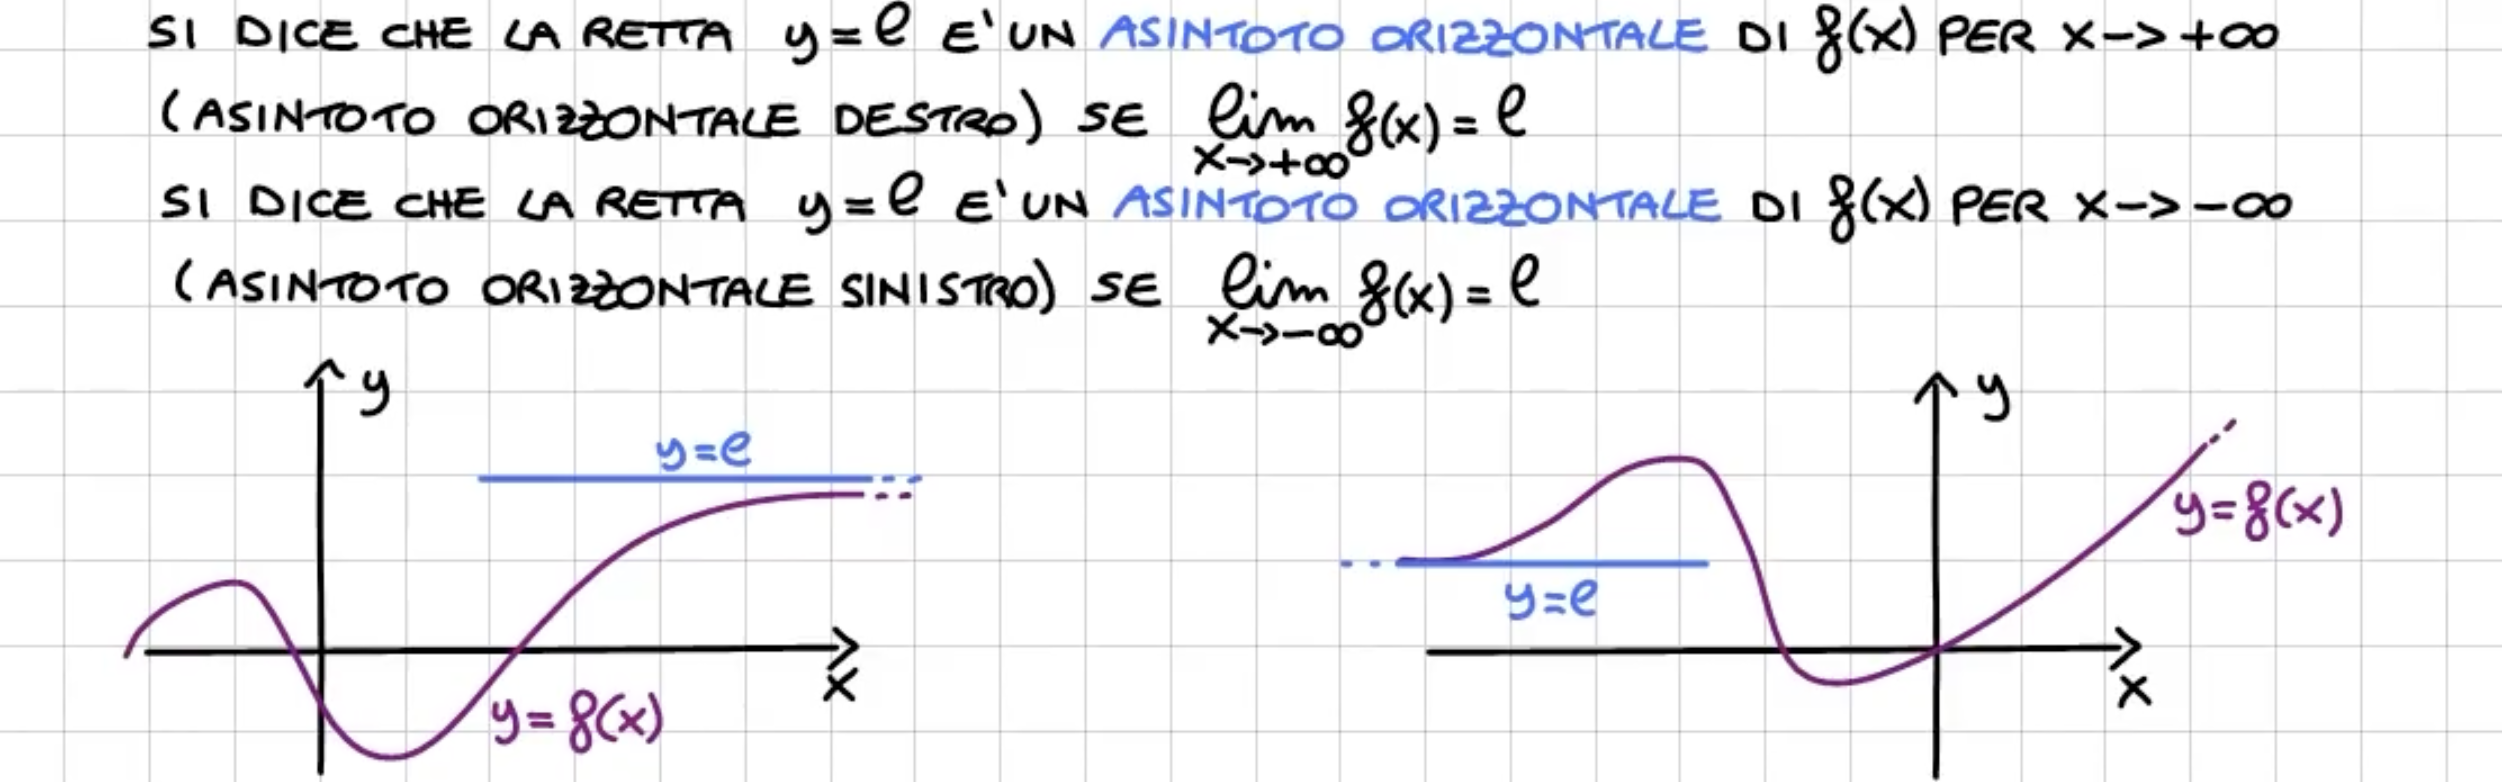 SI DICE CHE LA RETTA y=ℓ E' UN ASINTOTO ORIZZONTALE DI f(x) PER x->+∞
(ASINTOTO ORIZZONTALE DESTRO) SE lim f(x)=ℓ
x->+∞
SI DICE CHE LA RETTA y=ℓ E' UN ASINTOTO ORIZZONTALE DI f(x) PER x->-∞
(ASINTOTO ORIZZONTALE SINISTRO) SE lim f(x)=ℓ
x->-∞
y
y=ℓ
x
y=f(x)
y
y=f(x)
y=ℓ
x